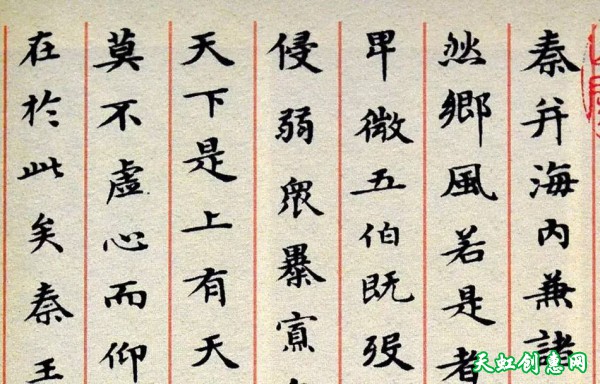 秦并海内兼諸
然鄉風若是者
卑微五伯既歿
侵弱眾暴寡
天下是上有天
莫不虛心而仰
在於此矣秦王
天虹创意网